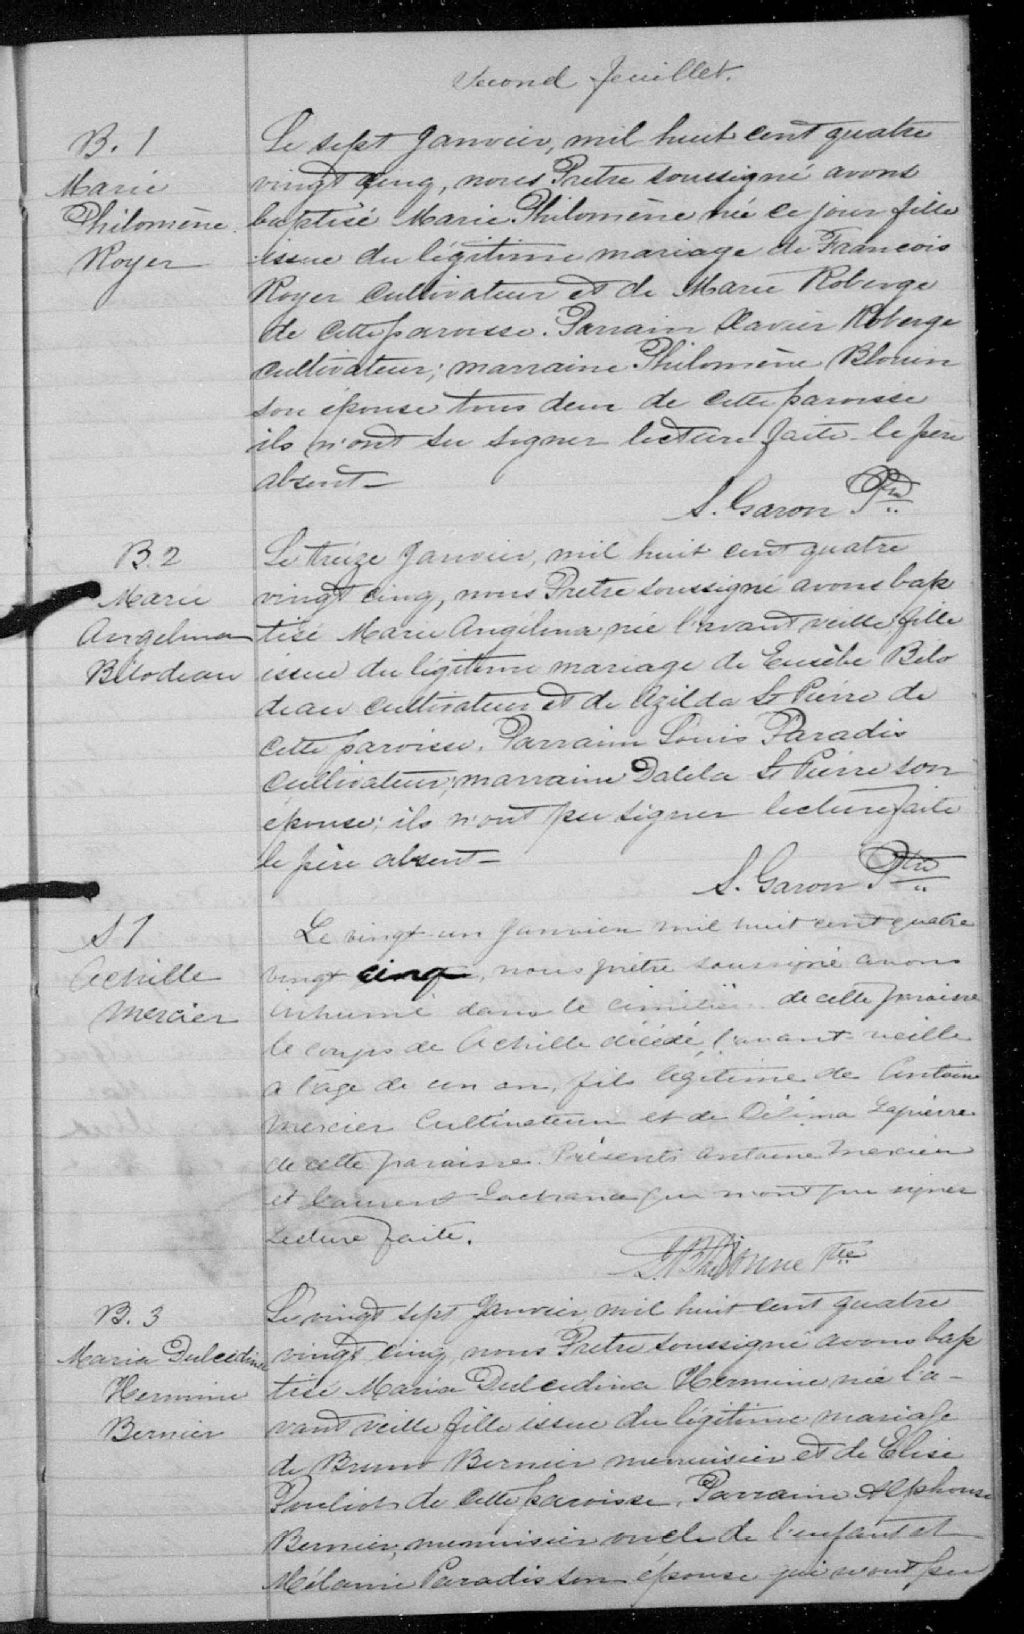 Second feuillet.
B. 1
Marie
Philomène
Royer
Le sept Janvier, mil huit cent quatre
vingt cinq, nous Prêtre soussigné avons
baptisé Marie Philomène née ce jour fille
issue du légitime mariage de Francois
Royer cultivateur et de Marie Roberge
de cette paroisse. Parrain Xavier Roberge
cultivateur; marraine Philomène Blouin
son épouse tous deux de cette paroisse
ils n'ont su signer lecture faite le père
absent—
S. Garon Ptre
B. 2
Marie
Angelina
Bilodeau
Le treize Janvier, mil huit cent quatre
vingt cinq, nous Prêtre soussigné avons bap
tisé Marie Angélina née l'avant veille fille
issue du légitime mariage de Eusèbe Bilo
deau cultivateur et de Azilda St Pierre de
cette paroisse. Parrain Louis Paradis
cultivateur, marraine Dalila St Pierre son
épouse; ils n'ont pu signer lecture faite
le père absent—
S. Garon Ptre
S 1
Achille
Mercier
Le vingt-un Janvier mil huit cent quatre
vingt cinq, nous prêtre soussigné avons
inhumé dans le cimetière de cette paroisse
le corps de Achille décédé l'avant-veille
a l'age de un an, fils légitime de Antoine
Mercier Cultivateur et de Délima Lapierre
de cette paroisse. Présents Antoine Mercier
et Laurent Lachance qui n'ont pu signer
Lecture faite.
Ptre
B. 3
Maria Dulcidina
Hermine
Bernier
Le vingt sept Janvier, mil huit cent quatre
vingt cinq, nous Prêtre soussigné avons bap
tisé Maria Dulcidina Hermine née l'a-
vant veille fille issue du légitime mariage
de Bruno Bernier menuisier et de Elise
Pouliot de cette paroisse. Parrain Alphonse
Bernier, menuisier oncle de l'enfant et
Mélanie Paradis son épouse qui n'ont pu